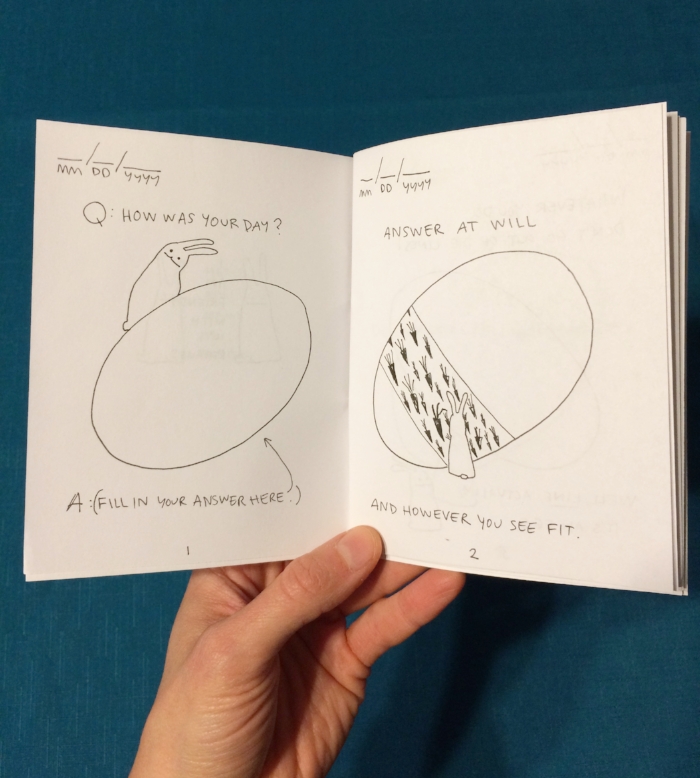 __/__/____
MM DD YYYY
Q: HOW WAS YOUR DAY?
A:(FILL IN YOUR ANSWER HERE:)
1
__/__/____
MM DD YYYY
ANSWER AT WILL
AND HOWEVER YOU SEE FIT.
2